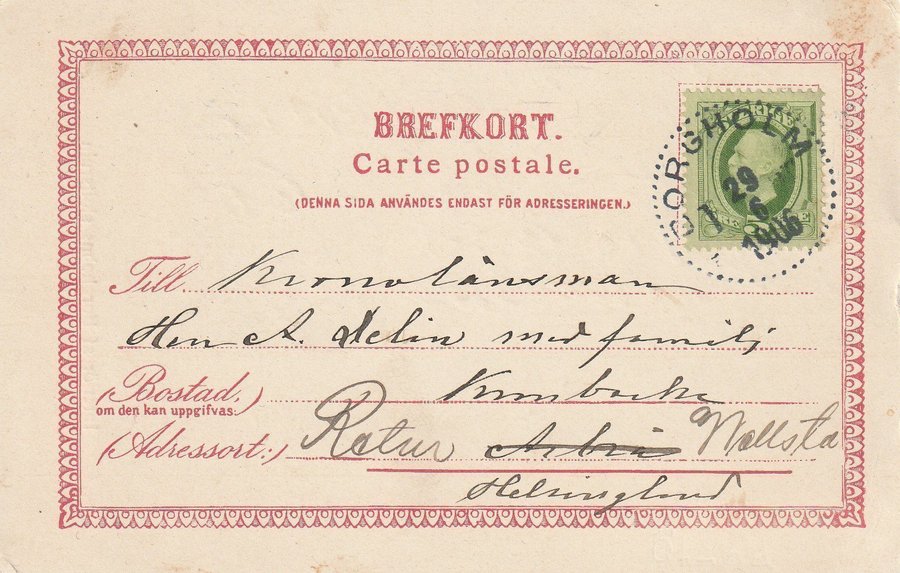 BREFKORT.
Carte postale.
(DENNA SIDA ANVÄNDES ENDAST FÖR ADRESSERINGEN.)
BORGHOLM
29
6
1906
Till Kronolänsman
Herr A. Delin med familj
(Bostad,
om den kan uppgifvas:)
(Adressort:) Retur Arbrå Wallsta
Helsingland